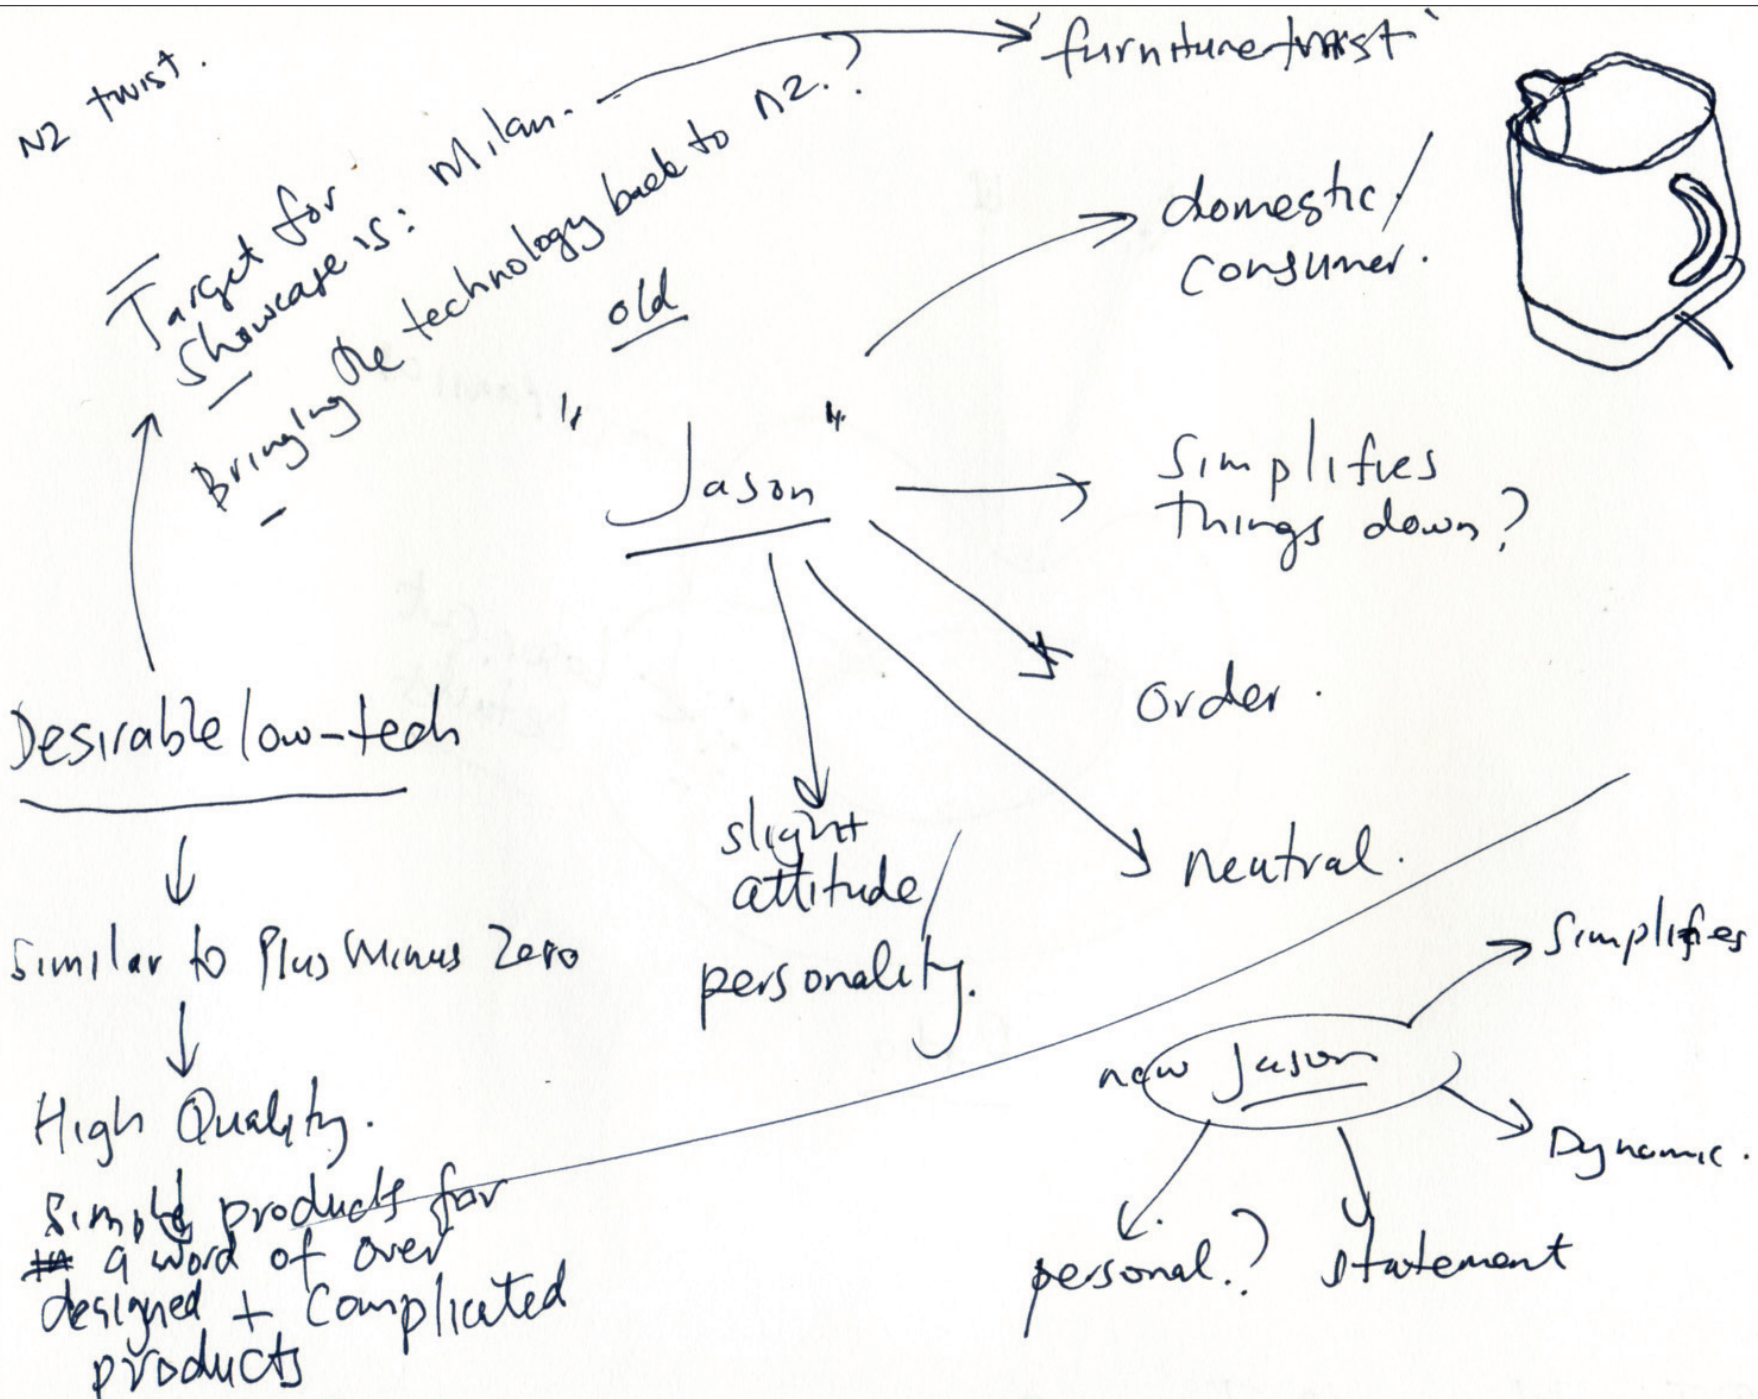 NZ twist.
Target for
showcase is: Milan.
'furniture twist'
Bringing the technology back to NZ.?
domestic/
consumer.
old
"Jason"
Simplifies
things down?
order.
neutral.
slight
attitude/
personality.
Desirable low-tech
Similar to Plus Minus Zero
High Quality.
Simple products for
a word of over
designed + complicated
products
new Jason
Simplifies
Dynamic.
statement
personal.?